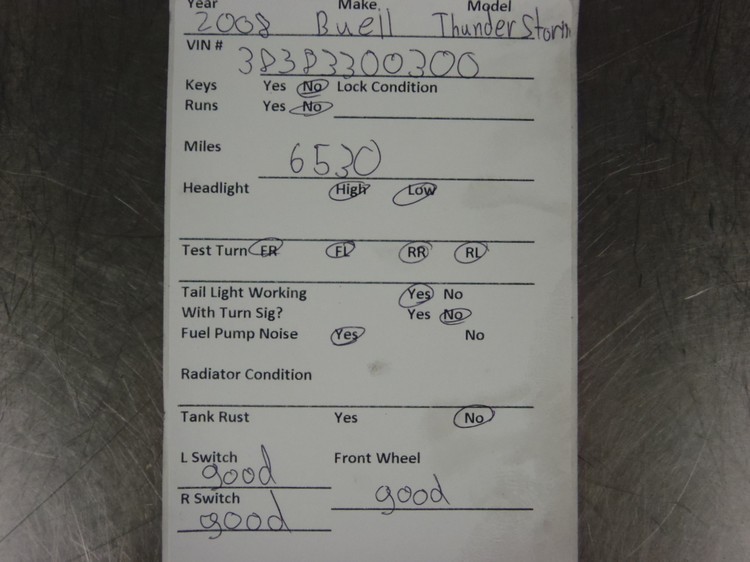 Year Make Model
2008 Buell ThunderStorm
VIN #
38383300300
Keys Yes No Lock Condition
Runs Yes No
Miles
6530
Headlight High Low
Test Turn FR FL RR RL
Tail Light Working Yes No
With Turn Sig? Yes No
Fuel Pump Noise Yes No
Radiator Condition
Tank Rust Yes No
L Switch Front Wheel
good
good
R Switch
good